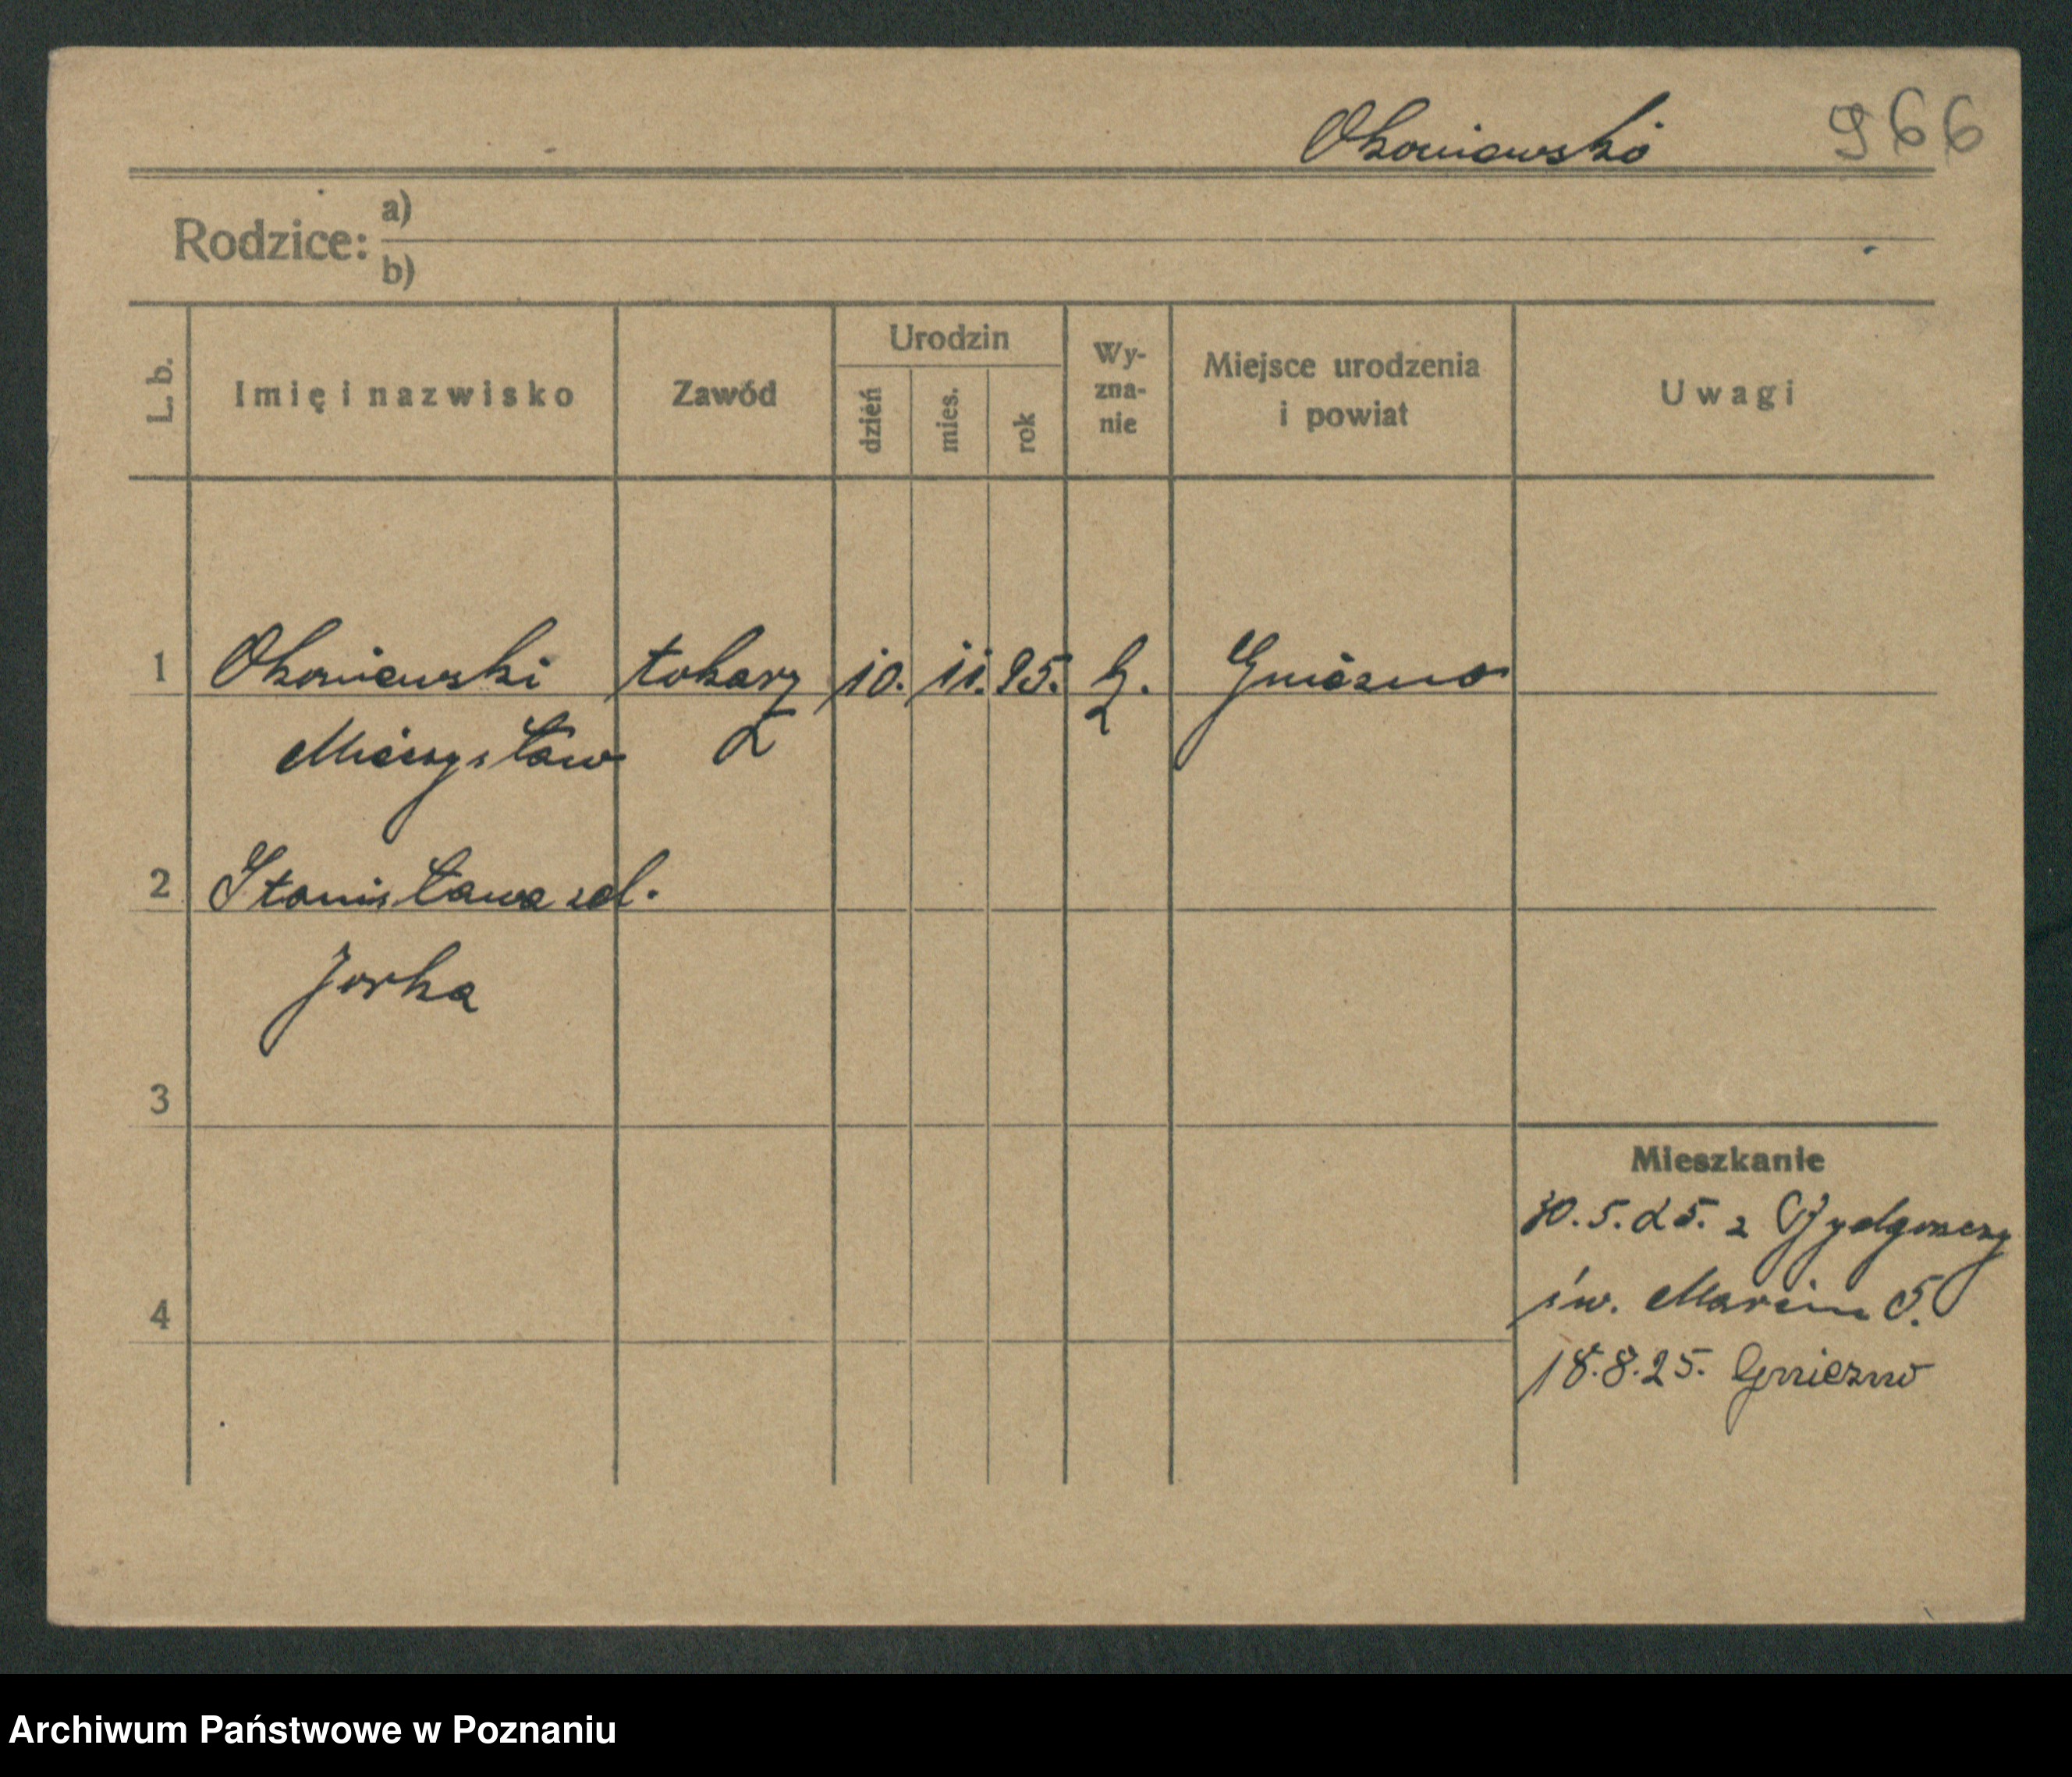 Okoniewski 966
Rodzice: a)
b)
L. b. Imię i nazwisko Zawód Urodzin dzień mies. rok Wy-zna-nie Miejsce urodzenia i powiat Uwagi
1 Okoniewski tokarz 10. 11. 95. Gniezno
Mieczysław
2 Stanisława zd.
Jorka
3
Mieszkanie
30.5.25. z Bydgoszczy
4 św. Marcin 5.
18.8.25. Gniezno
Archiwum Państwowe w Poznaniu